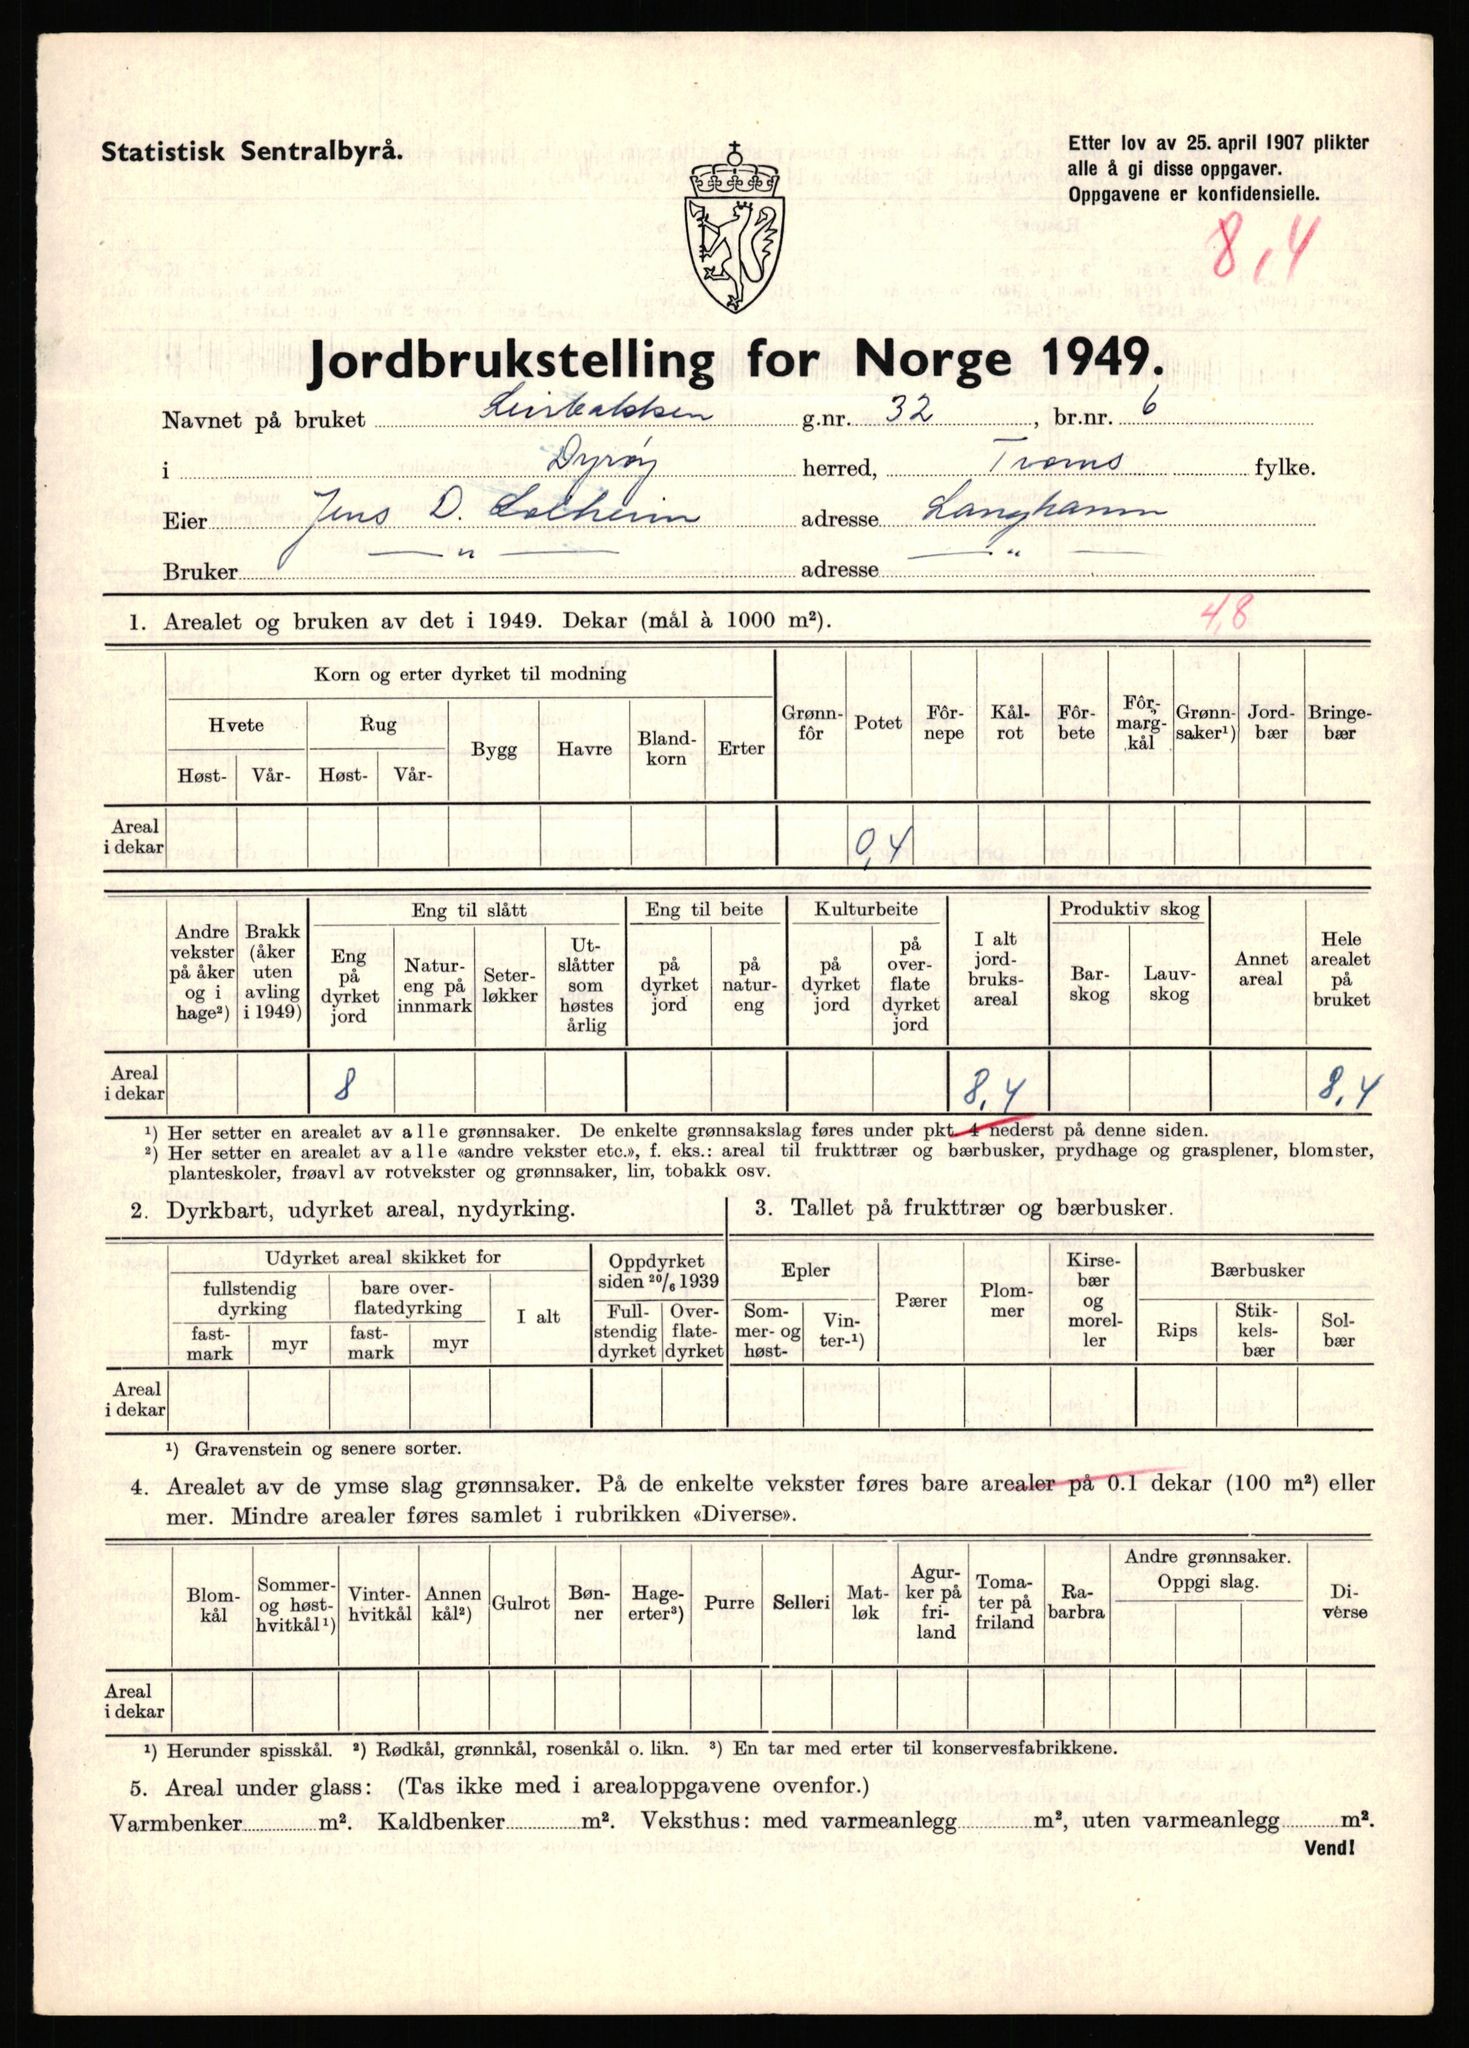 Statistisk Sentralbyrå.
Etter lov av 25. april 1907 plikter
alle å gi disse oppgaver.
Oppgavene er konfidensielle.
8,4
Jordbrukstelling for Norge 1949.
Navnet på bruket Leirbakken g.nr. 32, br.nr. 6
i Dyrøy herred, Troms fylke.
Eier Jens D. Solheim adresse Langhamn
Bruker — " — adresse — " —
1. Arealet og bruken av det i 1949. Dekar (mål à 1000 m²).
4,8
Korn og erter dyrket til modning
Hvete Rug Bygg Havre Bland-korn Erter
Høst- Vår- Høst- Vår-
Grønn-fôr Potet Fôr-nepe Kål-rot Fôr-bete Fôr-marg-kål Grønn-saker¹) Jord-bær Bringe-bær
Areal
i dekar 0,4
Andre vekster på åker og i hage²)
Brakk (åker uten avling i 1949)
Eng til slått
Eng på dyrket jord
Natur-eng på innmark
Seter-løkker
Ut-slåtter som høstes årlig
Eng til beite
på dyrket jord
på natur-eng
Kulturbeite
på dyrket jord
på over-flate dyrket jord
I alt jord-bruks-areal
Produktiv skog
Bar-skog
Lauv-skog
Annet areal
Hele arealet på bruket
Areal
i dekar 8 8,4 8,4
¹) Her setter en arealet av alle grønnsaker. De enkelte grønnsakslag føres under pkt. 4 nederst på denne siden.
²) Her setter en arealet av alle «andre vekster etc.», f. eks.: areal til frukttrær og bærbusker, prydhage og grasplener, blomster,
planteskoler, frøavl av rotvekster og grønnsaker, lin, tobakk osv.
2. Dyrkbart, udyrket areal, nydyrking.
Udyrket areal skikket for
fullstendig dyrking
bare over-flatedyrking
I alt
fast-mark myr fast-mark myr
Oppdyrket siden 20/6 1939
Full-stendig dyrket
Over-flate-dyrket
Areal
i dekar
¹) Gravenstein og senere sorter.
3. Tallet på frukttrær og bærbusker.
Epler
Som-mer- og høst-
Vin-ter-¹)
Pærer
Plom-mer
Kirse-bær og morel-ler
Bærbusker
Rips
Stik-kels-bær
Sol-bær
4. Arealet av de ymse slag grønnsaker. På de enkelte vekster føres bare arealer på 0.1 dekar (100 m²) eller
mer. Mindre arealer føres samlet i rubrikken «Diverse».
Blom-kål
Sommer- og høst-hvitkål¹)
Vinter-hvitkål
Annen kål²)
Gulrot
Bøn-ner
Hage-erter³)
Purre
Selleri
Mat-løk
Agur-ker på fri-land
Toma-ter på friland
Ra-barbra
Andre grønnsaker.
Oppgi slag.
Di-verse
Areal
i dekar
¹) Herunder spisskål. ²) Rødkål, grønnkål, rosenkål o. likn. ³) En tar med erter til konservesfabrikkene.
5. Areal under glass: (Tas ikke med i arealoppgavene ovenfor.)
Varmbenker m². Kaldbenker m². Veksthus: med varmeanlegg m², uten varmeanlegg m².
Vend!